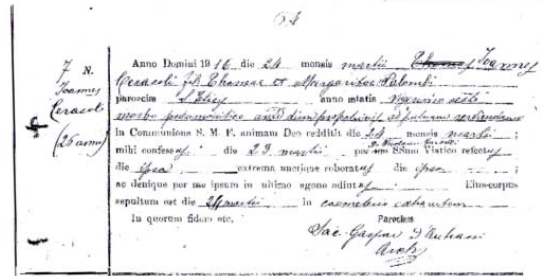 64
7 N.
Joannes
Cerasoli
(26 annu)
Anno Domini 1916 die 24 mensis martii Thomas Joannes
Cerasoli fil. Thomae et Margaritae Palombi
paroeciae S. Eliae anno aetatis vigesimo sexto
morbo
in Communione S. M. E. animam Deo reddidit die 24 mensis martii ;
mihi confessus die 23 martii per SSmo Viatico refectus
die ipsa extrema unctione roboratus die ipsa ;
ac denique per me ipsum in ultimo agone adiutus Eius corpus
sepultum est die 24 martii in coemeterio
In quorum fidem etc. Parochus
Sac. Gaspar D'Antrani
Arch.